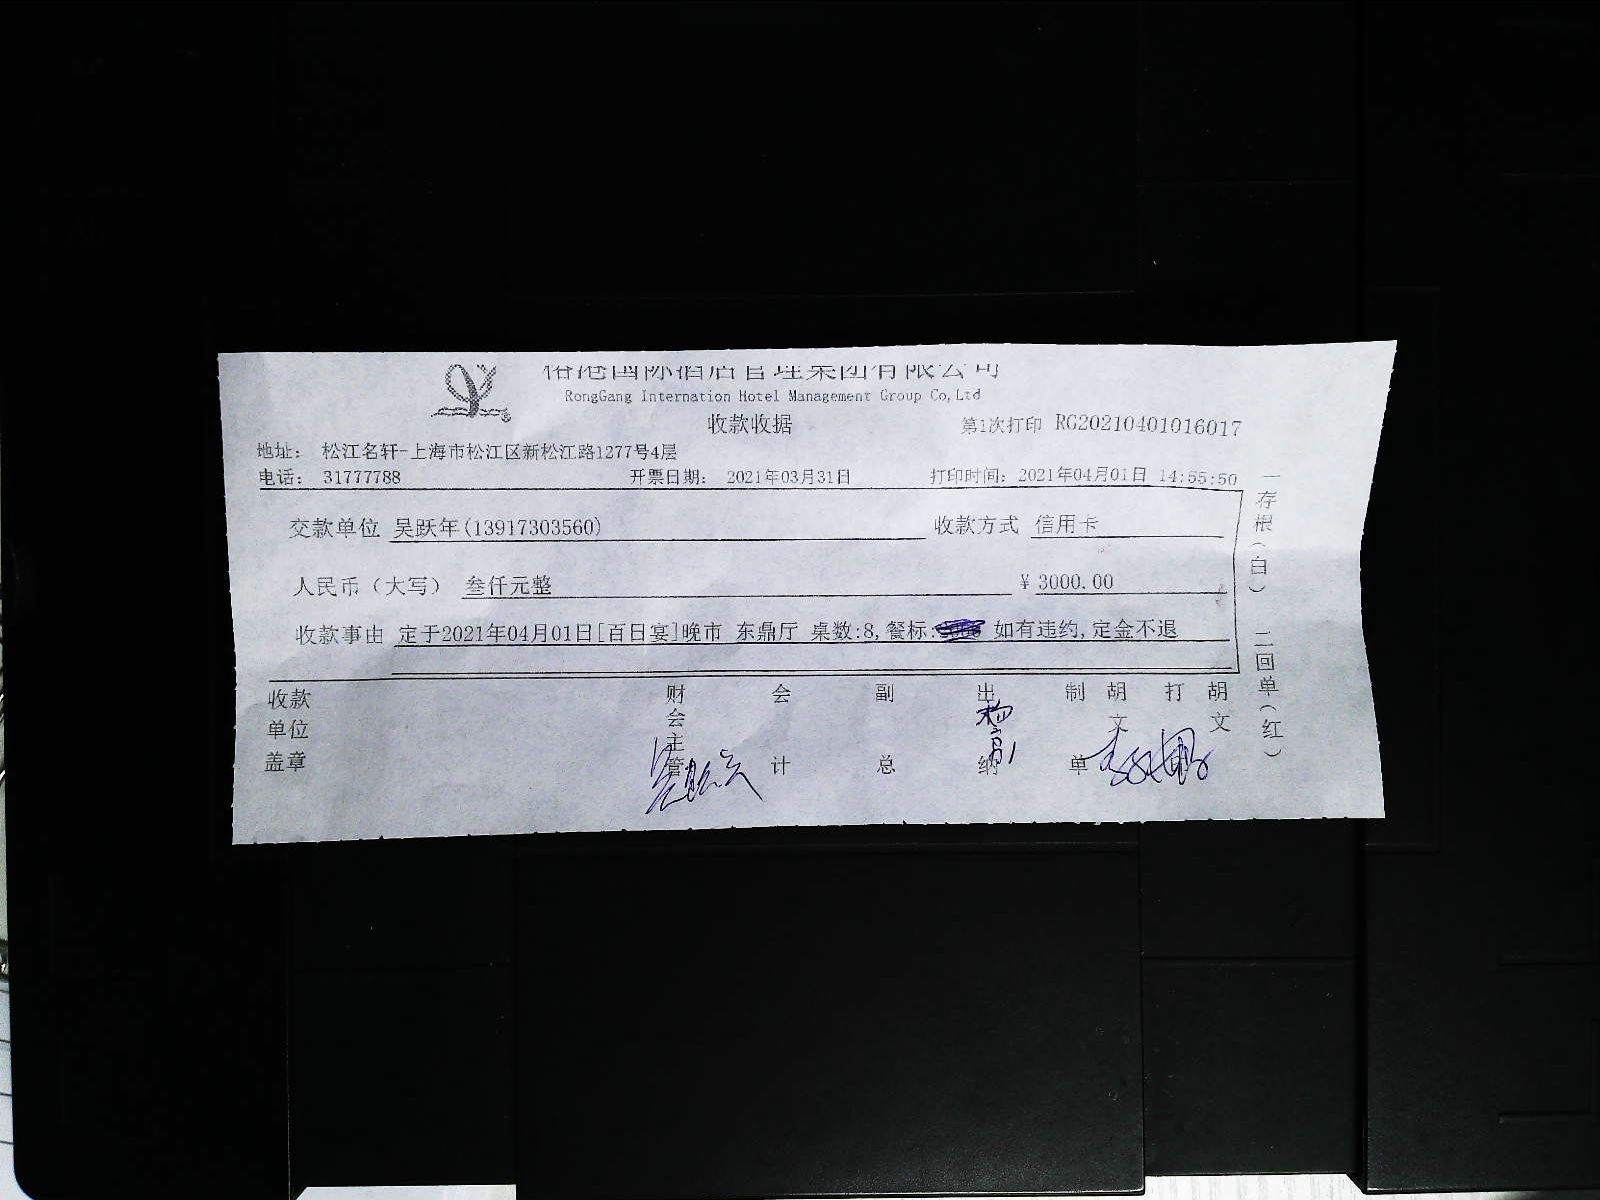 港国际酒店管理集团有限公司
RongGang Internation Hotel Management Group Co,Ltd
收款收据
第1次打印 RG20210401016017
地址： 松江名轩-上海市松江区新松江路1277号4层
电话： 31777788 开票日期： 2021年03月31日 打印时间： 2021年04月01日 14:55:50
交款单位 吴跃年(13917303560) 收款方式 信用卡
人民币（大写） 叁仟元整 ￥3000.00
收款事由 定于2021年04月01日[百日宴]晚市 东鼎厅 桌数:8,餐标: 如有违约,定金不退
收款单位盖章 财会主管 会计 副总 出纳 制单 胡文 打 胡文
一存根（白） 二回单（红）